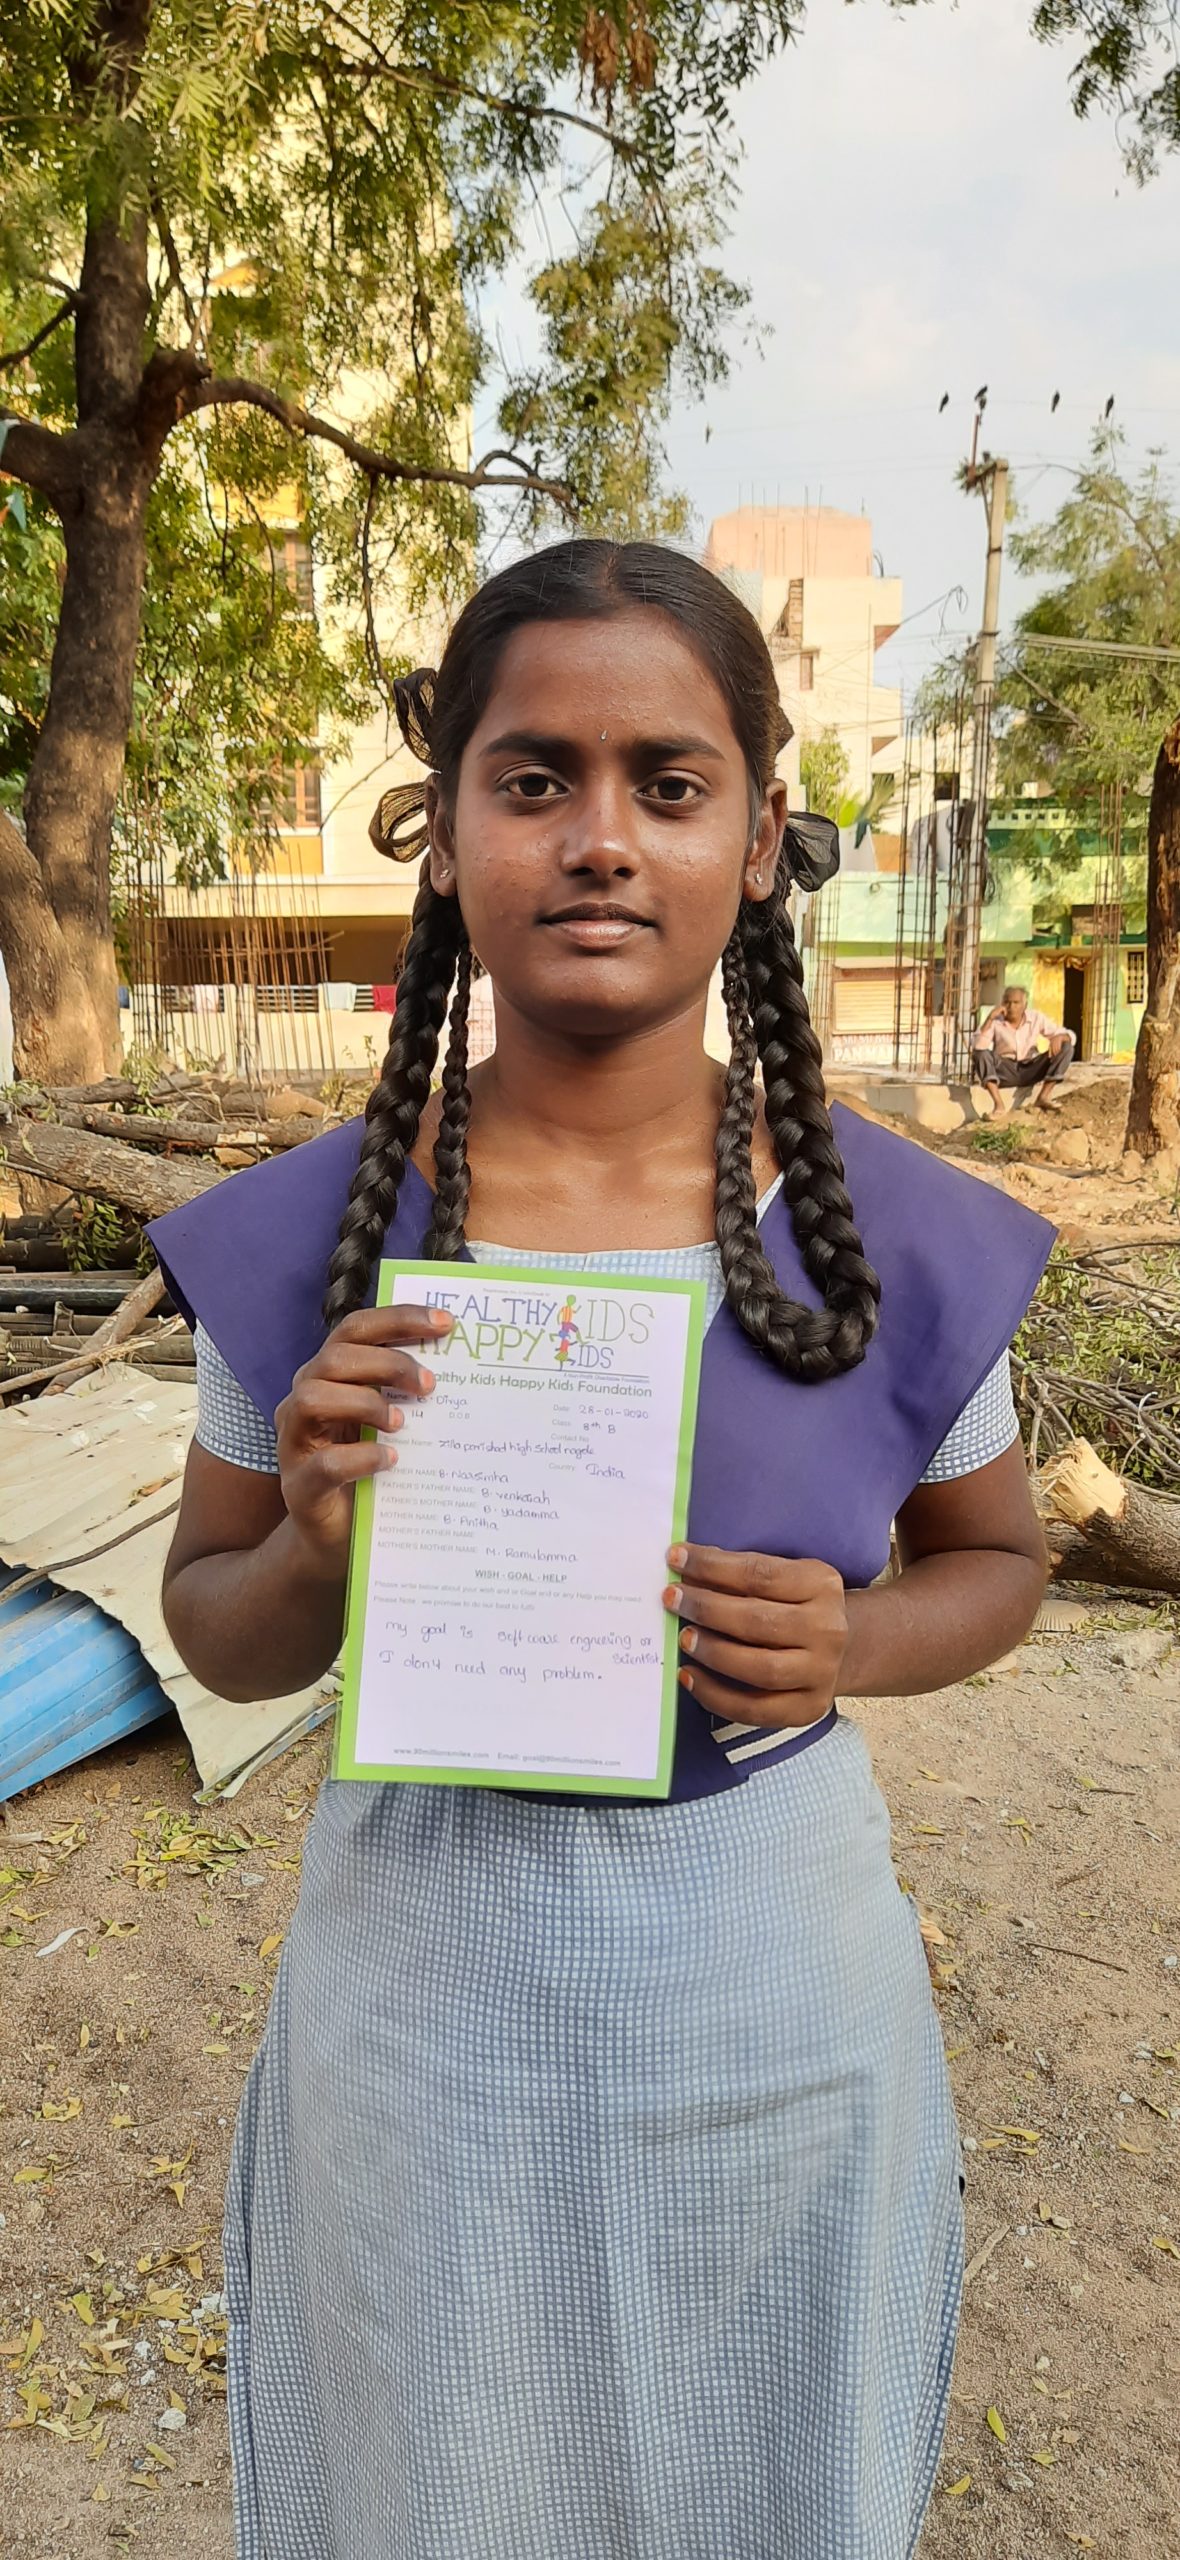 HEALTHY KIDS
HAPPY KIDS
A Non-Profit Charitable Foundation
ealthy Kids Happy Kids Foundation
Name: B. Divya Date: 28-01-2020
14 D.O.B Class: 8th B
Contact No
School Name: zilla parishad high school nagole
Country: India
THER NAME B. Narsimha
FATHER'S FATHER NAME: B. venkaiah
FATHER'S MOTHER NAME: B. yadamma
MOTHER NAME: B. Anitha
MOTHER'S FATHER NAME
MOTHER'S MOTHER NAME: M. Ramulamma
WISH - GOAL - HELP
Please write below about your wish and or Goal and or any Help you may need.
Please Note : we promise to do our best to fulfil
my goal is soft ware engneeing or
Scientist.
I don't need any problem.
www.90millionsmiles.com Email: goal@90millionsmiles.com
PAN